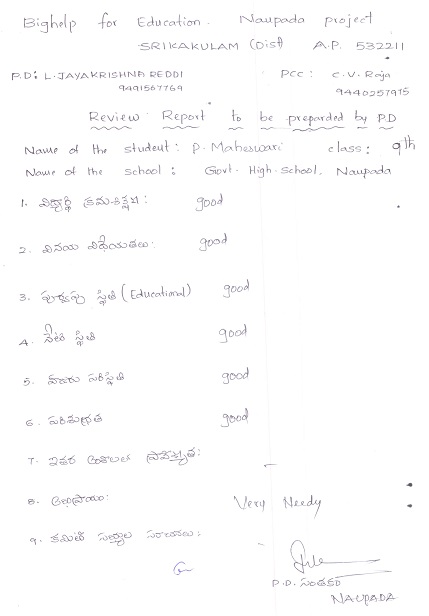 Bighelp for Education. Naupada project
SRIKAKULAM (Dist) A.P. 532211
P.D: L. JAYAKRISHNA REDDI PCC: C.V. Raja
9491567769 9440257975
Review Report to be preparded by P.D
Name of the student: P. Maheswari class: 9th
Name of the school: Govt. High-School, Naupada
1. విద్యార్థి క్రమశిక్షణ: good
2. వినయ విధేయతలు: good
3. పూర్వపు స్థితి (Educational) good
4. నేటి స్థితి good
5. హాజరు పరిస్థితి good
6. పరిశుభ్రత good
7. ఇతర అంశాలలో ప్రావీణ్యత: -
8. అభిప్రాయం: Very Needy
9. కమిటీ సభ్యుల సంతకాలు:
P.D. సంతకం
NAUPADA